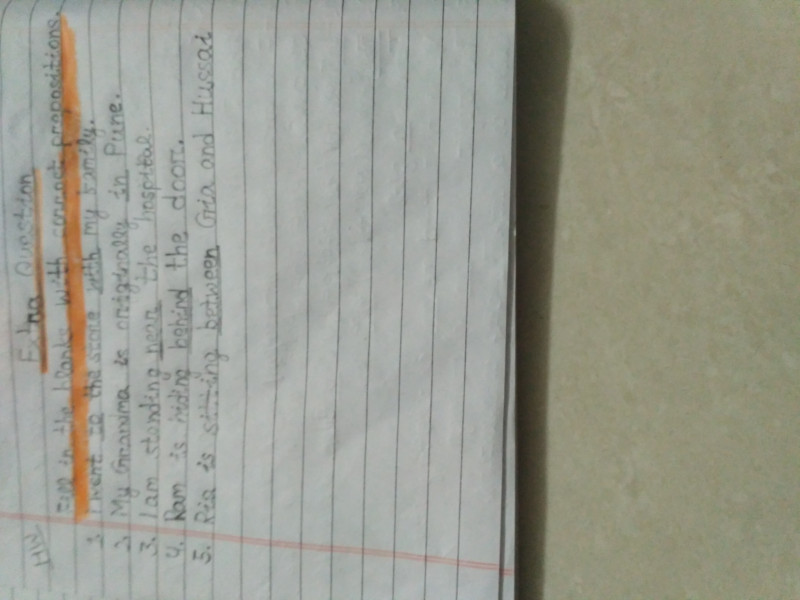 HW
Extra Question
Fill in the blanks with correct prepositions.
1. I went to the store with my family.
2. My Grandma is originally in Pune.
3. I am standing near the hospital.
4. Ram is hiding behind the door.
5. Ria is sitting between Gria and Hussai